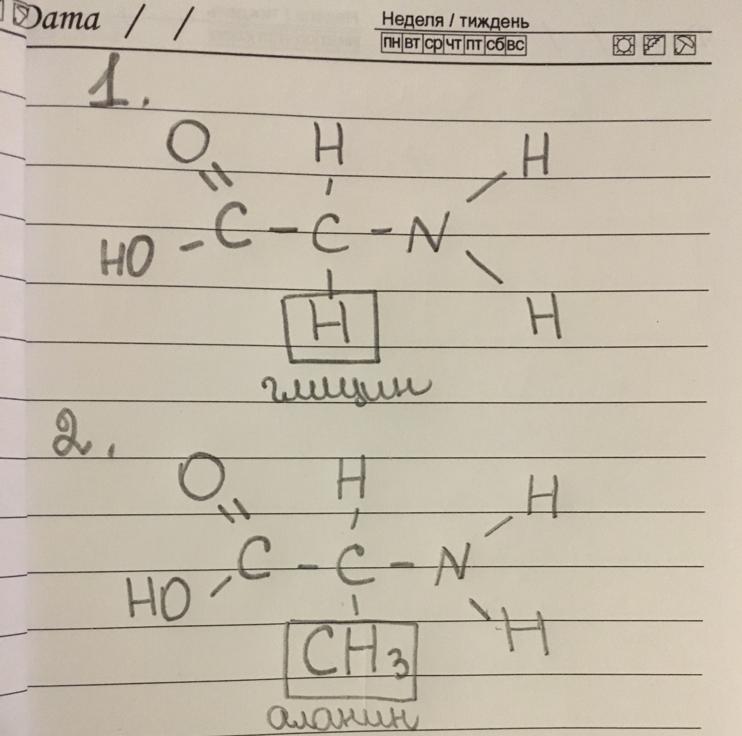 Дата / /
Неделя / тиждень
пн вт ср чт пт сб вс
1.
O H H
HO - C - C - N
H H
глицин
2.
O H H
HO C - C - N
CH₃ H
аланин